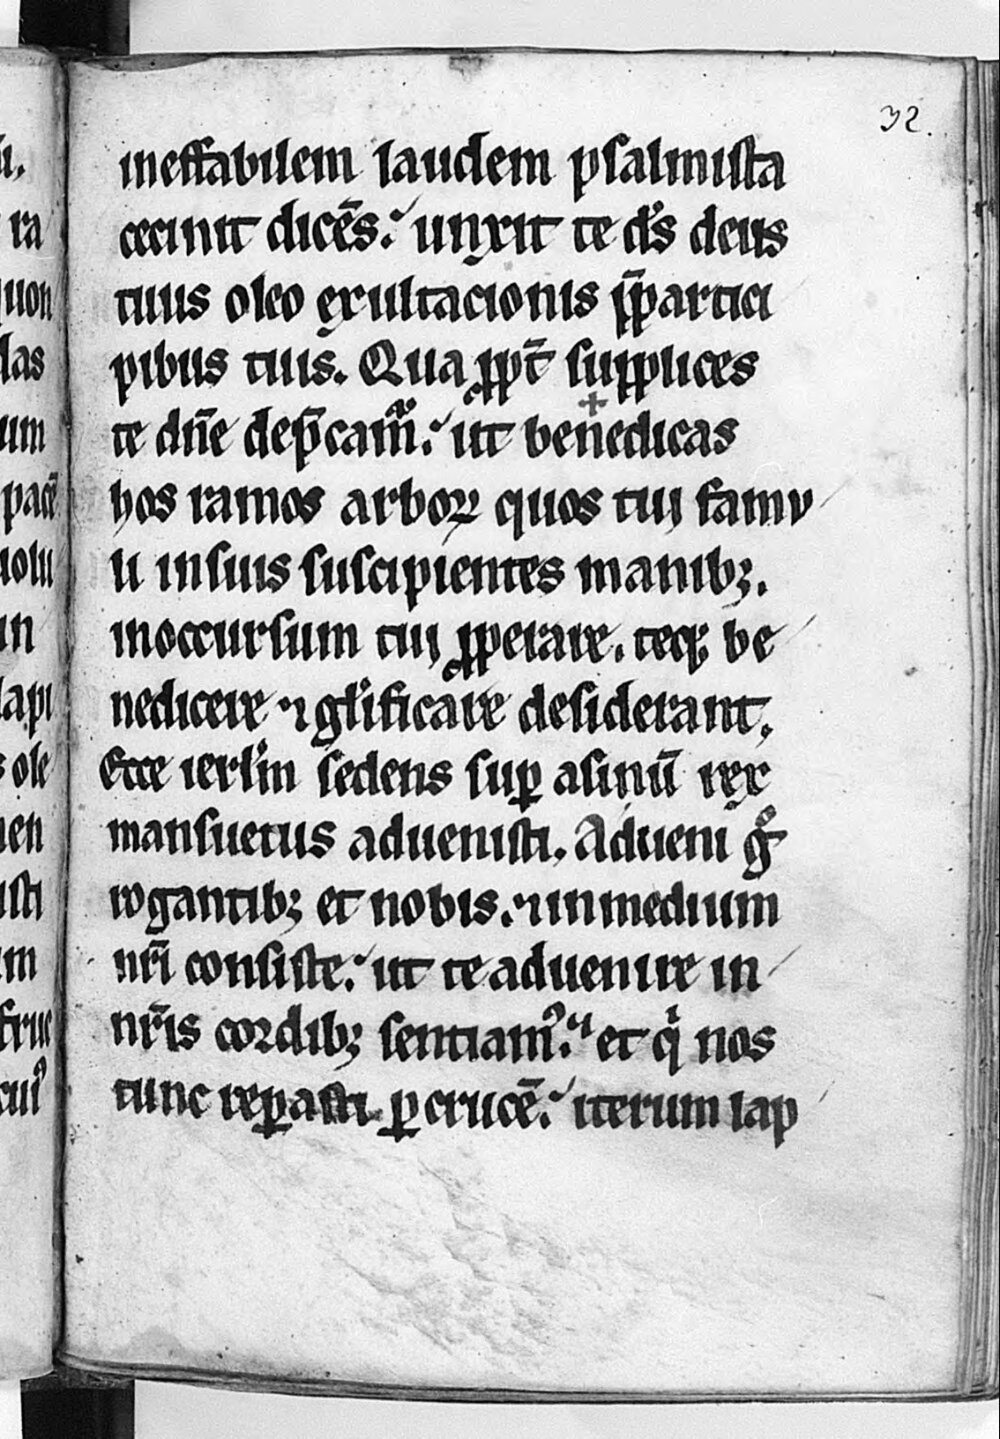 32.
ineffabilem laudem psalmista
cecinit dicēs. unxit te ds deus
tuus oleo exultacionis p̄partici
pibus tuis. Qua ꝓpt̄ supplices
te dn̄e dep̄camᷓ. ut benedicas
hos ramos arboꝝ quos tuj famu
li in suis suscipientes manibꝫ.
in occursum tuj ꝓperare. teqꝫ be
nedicere ⁊ gl̓ificare desiderant.
Ecce ierl̓m sedens suꝑ asinū rex
mansuetus aduenisti. Adueni gͦ
rogantibꝫ et nobis. ⁊ in medium
nr̄i consiste. ut te aduenire in
nr̄is cordibꝫ sentiamꝰ. et qͥ nos
tunc reꝑasti ꝑ crucē. iterum lap
ra
quon
las
um
pacē
uolu
in
lapi
ole
uen
isti
m
fruc
cuiꝰ